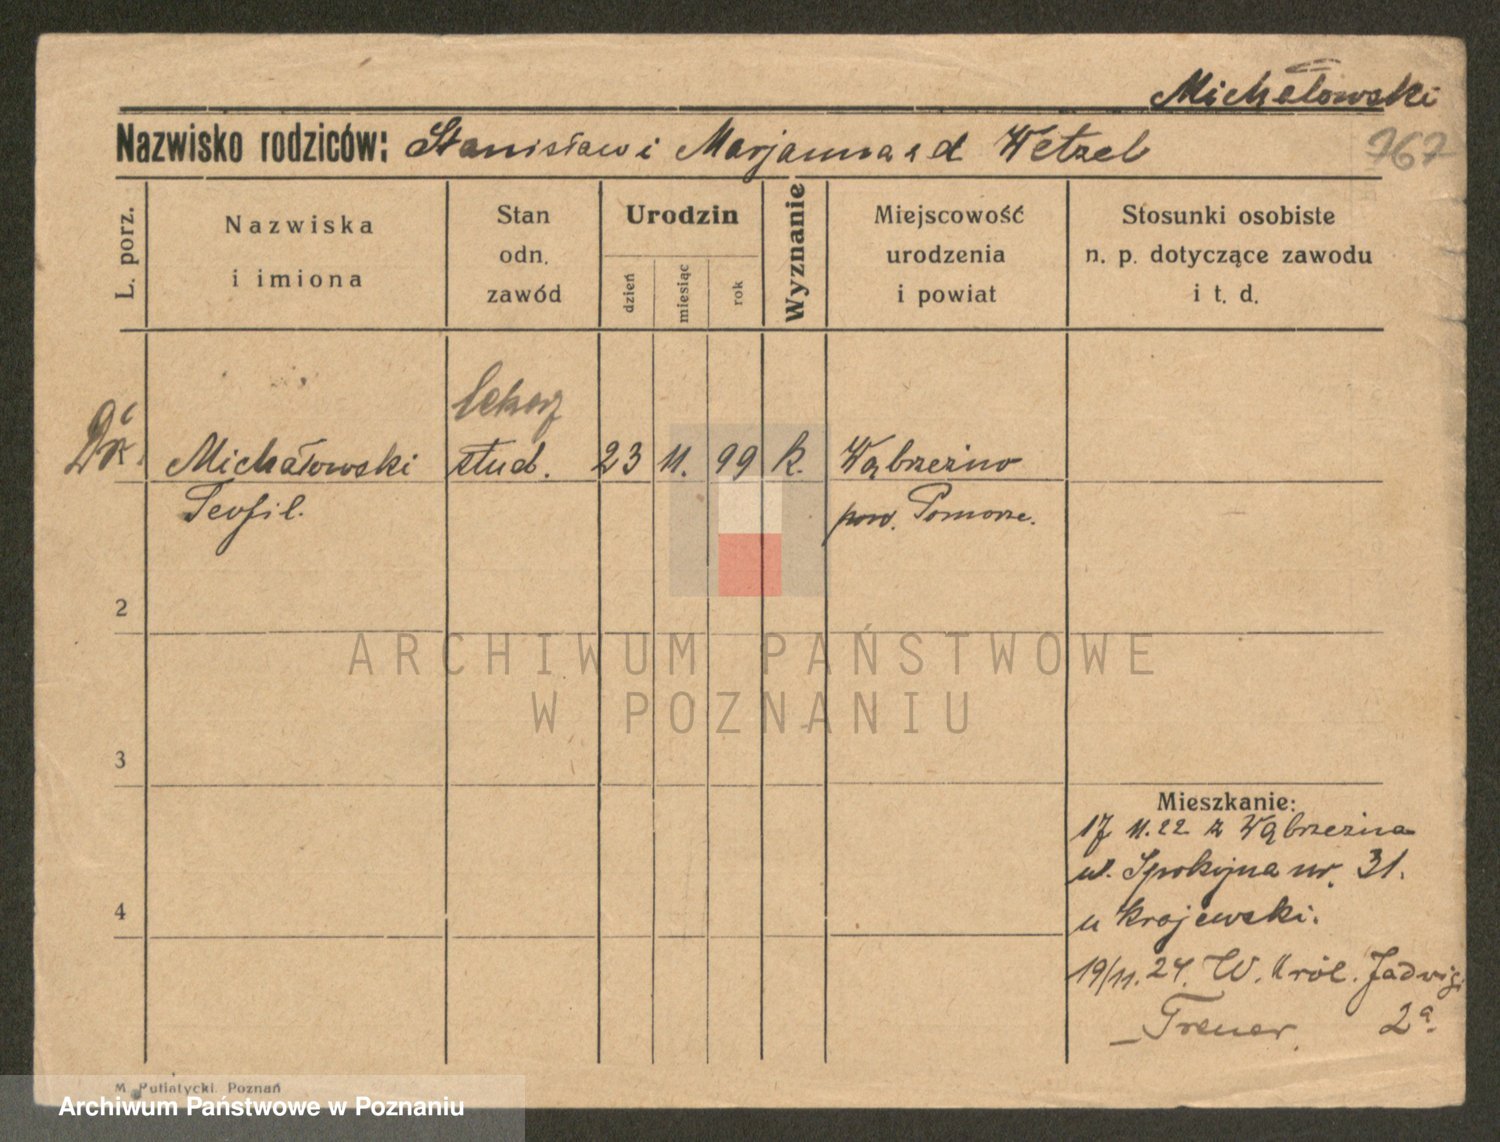 Michałowski
Nazwisko rodziców: Stanisław i Marjanna z d Wetzel
767
L. porz.
Nazwiska
i imiona
Stan
odn.
zawód
Urodzin
dzień
miesiąc
rok
Wyznanie
Miejscowość
urodzenia
i powiat
Stosunki osobiste
n. p. dotyczące zawodu
i t. d.
lekarz
Dr.
Michałowski stud. 23 11. 99 k. Wąbrzeźno
Teofil. pow. Pomorze.
2
3
4
ARCHIWUM PAŃSTWOWE
W POZNANIU
Mieszkanie:
17 11.22 z Wąbrzeźna
ul. Spokojna nr. 31.
u Krajewski.
19/11.24. W. Król. Jadwigi
Trener. 2a.
M. Putiatycki. Poznań
Archiwum Państwowe w Poznaniu